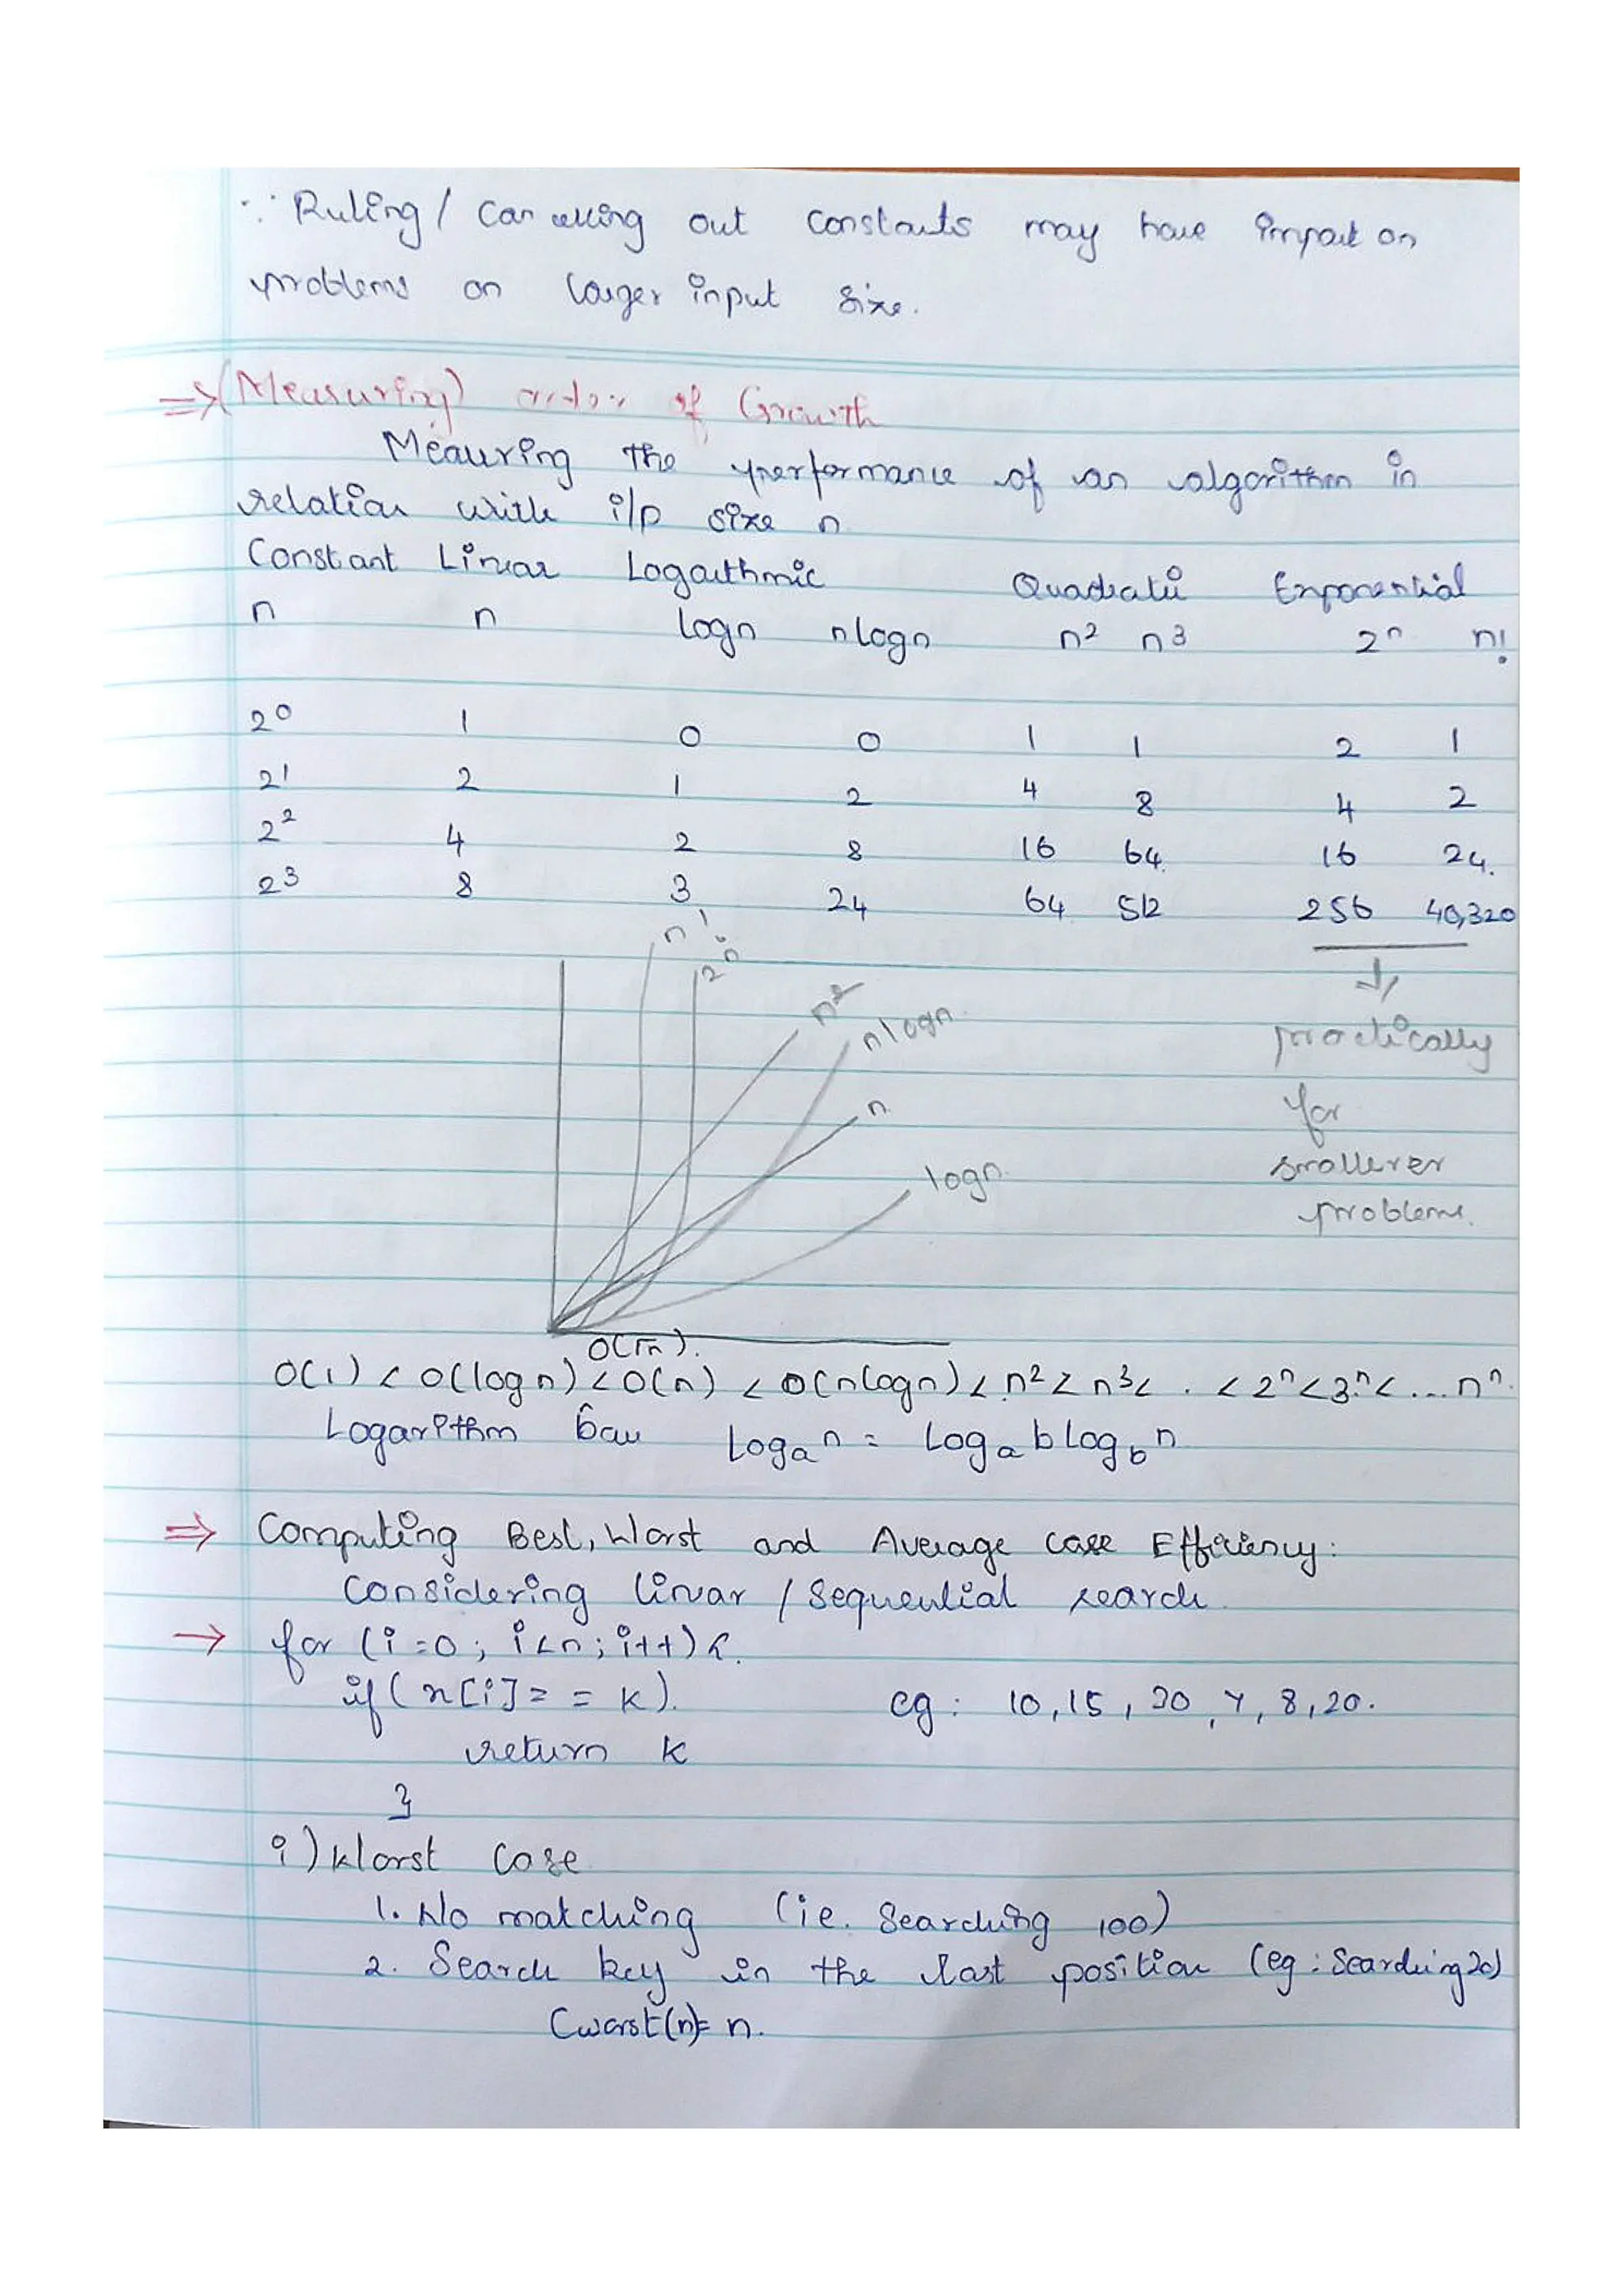 ∵ Ruling / Cancelling out constants may have impact on
problems on larger input size.
⇒ (Measuring) order of Growth
Meauring the performance of an algorithm in
relation with i/p size n
Constant Linear Logarithmic Quadratic Exponential
n n logn nlogn n² n³ 2ⁿ n!
2⁰ 1 0 0 1 1 2 1
2¹ 2 1 2 4 8 4 2
2² 4 2 8 16 64 16 24.
2³ 8 3 24 64 512 256 40,320
n! 2ⁿ n² nlogn n logn
↓
practically
for
smallerer
problems.
O(√n).
O(1) < O(logn) < O(n) < O(nlogn) < n² < n³ < . < 2ⁿ < 3ⁿ < ... nⁿ.
Logarithm base logₐn = logₐb log_b n
⇒ Computing Best, Worst and Average case Efficiency:
Considering linear / Sequential search.
→ for (i=0; i<n; i++) {.
if (x[i] == k). eg: 10, 15, 30, 7, 8, 20.
return k
}
i) Worst Case
1. No matching (ie. Searching 100)
2. Search key in the last position (eg: Searching 20)
Cworst(n) = n.